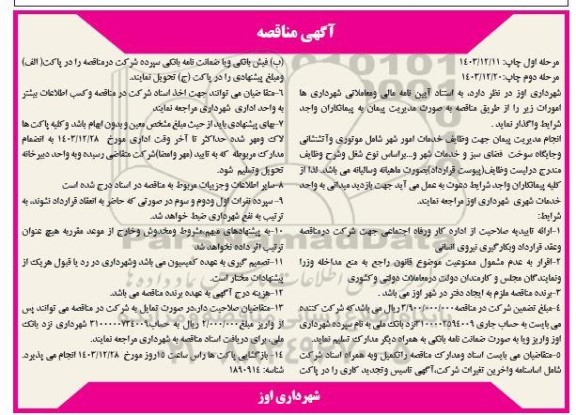 آگهی مناقصه
مرحله اول چاپ: ۱۴۰۳/۱۲/۱۱
مرحله دوم چاپ: ۱۴۰۳/۱۲/۲۰
شهرداری اوز در نظر دارد، به استناد آیین نامه مالی ومعاملاتی شهرداری ها
امورات زیر را از طریق مناقصه به صورت مدیریت پیمان به پیمانکاران واجد
شرایط واگذار نماید.
انجام مدیریت پیمان جهت وظایف خدمات امور شهر شامل موتوری وآتشنشانی
وجایگاه سوخت فضای سبز و خدمات شهر و...براساس نوع شغل وشرح وظایف
مندرج درلیست وظایف(پیوست قرارداد)بصورت ماهیانه وسالیانه می باشد. لذا از
کلیه پیمانکاران واجد شرایط دعوت به عمل می آید جهت بازدید میدانی به واحد
خدمات شهری شهرداری اوز مراجعه نمایند.
شرایط:
۱-ارائه تاییدیه صلاحیت از اداره کار ورفاه اجتماعی جهت شرکت درمناقصه
وعقد قرارداد وبکارگیری نیروی انسانی
۲-اقرار به عدم مشمول ممنوعیت موضوع قانون راجع به منع مداخله وزرا
ونمایندگان مجلس و کارمندان دولت درمعاملات دولتی وکشوری
۳-برنده مناقصه ملزم به ایجاد دفتر در شهر اوز می باشد.
۴-مبلغ تضمین شرکت در مناقصه ۲/۹۰۰/۰۰۰/۰۰۰ ریال می باشد که شرکت کننده
می بایست به حساب جاری ۳۱۰۰۰۰۲۵۹۴۰۰۹ نزد بانک ملی به نام سپرده شهرداری
اوز واریز ویا به صورت ضمانت نامه بانکی به همراه دیگر مدارک تسلیم نماید.
۵-متقاضیان می بایست اسناد ومدارک مناقصه راتکمیل وبه همراه اسناد شرکت
شامل اساسنامه واخرین تغیرات شرکت،آگهی تاسیس وتجدید کاری را در پاکت
(ب) فیش بانکی ویا ضمانت نامه بانکی سپرده شرکت درمناقصه را در پاکت( الف)
ومبلغ پیشنهادی را در پاکت (ج) تحویل نمایند.
۶-متقاضیان می توانند جهت اخذ اسناد شرکت در مناقصه وکسب اطلاعات بیشتر
به واحد اداری شهرداری مراجعه نمایند
۷-بهای پیشنهادی باید از حیث مبلغ مشخص معین و بدون ابهام باشد و کلیه پاکت ها
لاک ومهر شده حداکثر تا آخر وقت اداری مورخ ۱۴۰۳/۱۲/۲۸ به انضمام
مدارک مربوطه که به تایید (مهر وامضا)شرکت متقاضی رسیده وبه واحد دبیرخانه
تحویل وتسلیم شود.
۸-سایر اطلاعات وجزییات مربوط به مناقصه در اسناد درج شده است
۹-سپرده نفرات اول ودوم و سوم در صورتی که حاضر به انعقاد قرارداد نشوند، به
ترتیب به نفع شهرداری ضبط خواهد شد.
۱۰-به پیشنهادهای مبهم،مشروط ومخدوش وخارج از موعد مقرربه هیچ عنوان
ترتیب اثر داده نخواهد شد
۱۱-تصمیم گیری به عهده کمیسیون می باشد وشهرداری در رد یا قبول هریک از
پیشنهادات مختار است.
۱۲-هزینه درج آگهی به عهده برنده مناقصه می باشد.
۱۳-متقاضیان صلاحیت دار،درصورت تمایل به شرکت در مناقصه می توانند پس
از واریز مبلغ ۲/۰۰۰/۰۰۰ ریال به حساب شهرداری نزد بانک
ملی برای دریافت اسناد مناقصه به شهرداری مراجعه نمایند.
۱۴-بازگشایی پاکت ها راس ساعت ۱۵روز مورخ ۱۴۰۳/۱۲/۲۸ انجام می پذیرد.
شناسه: ۱۸۹۰۹۱۴
شهرداری اوز